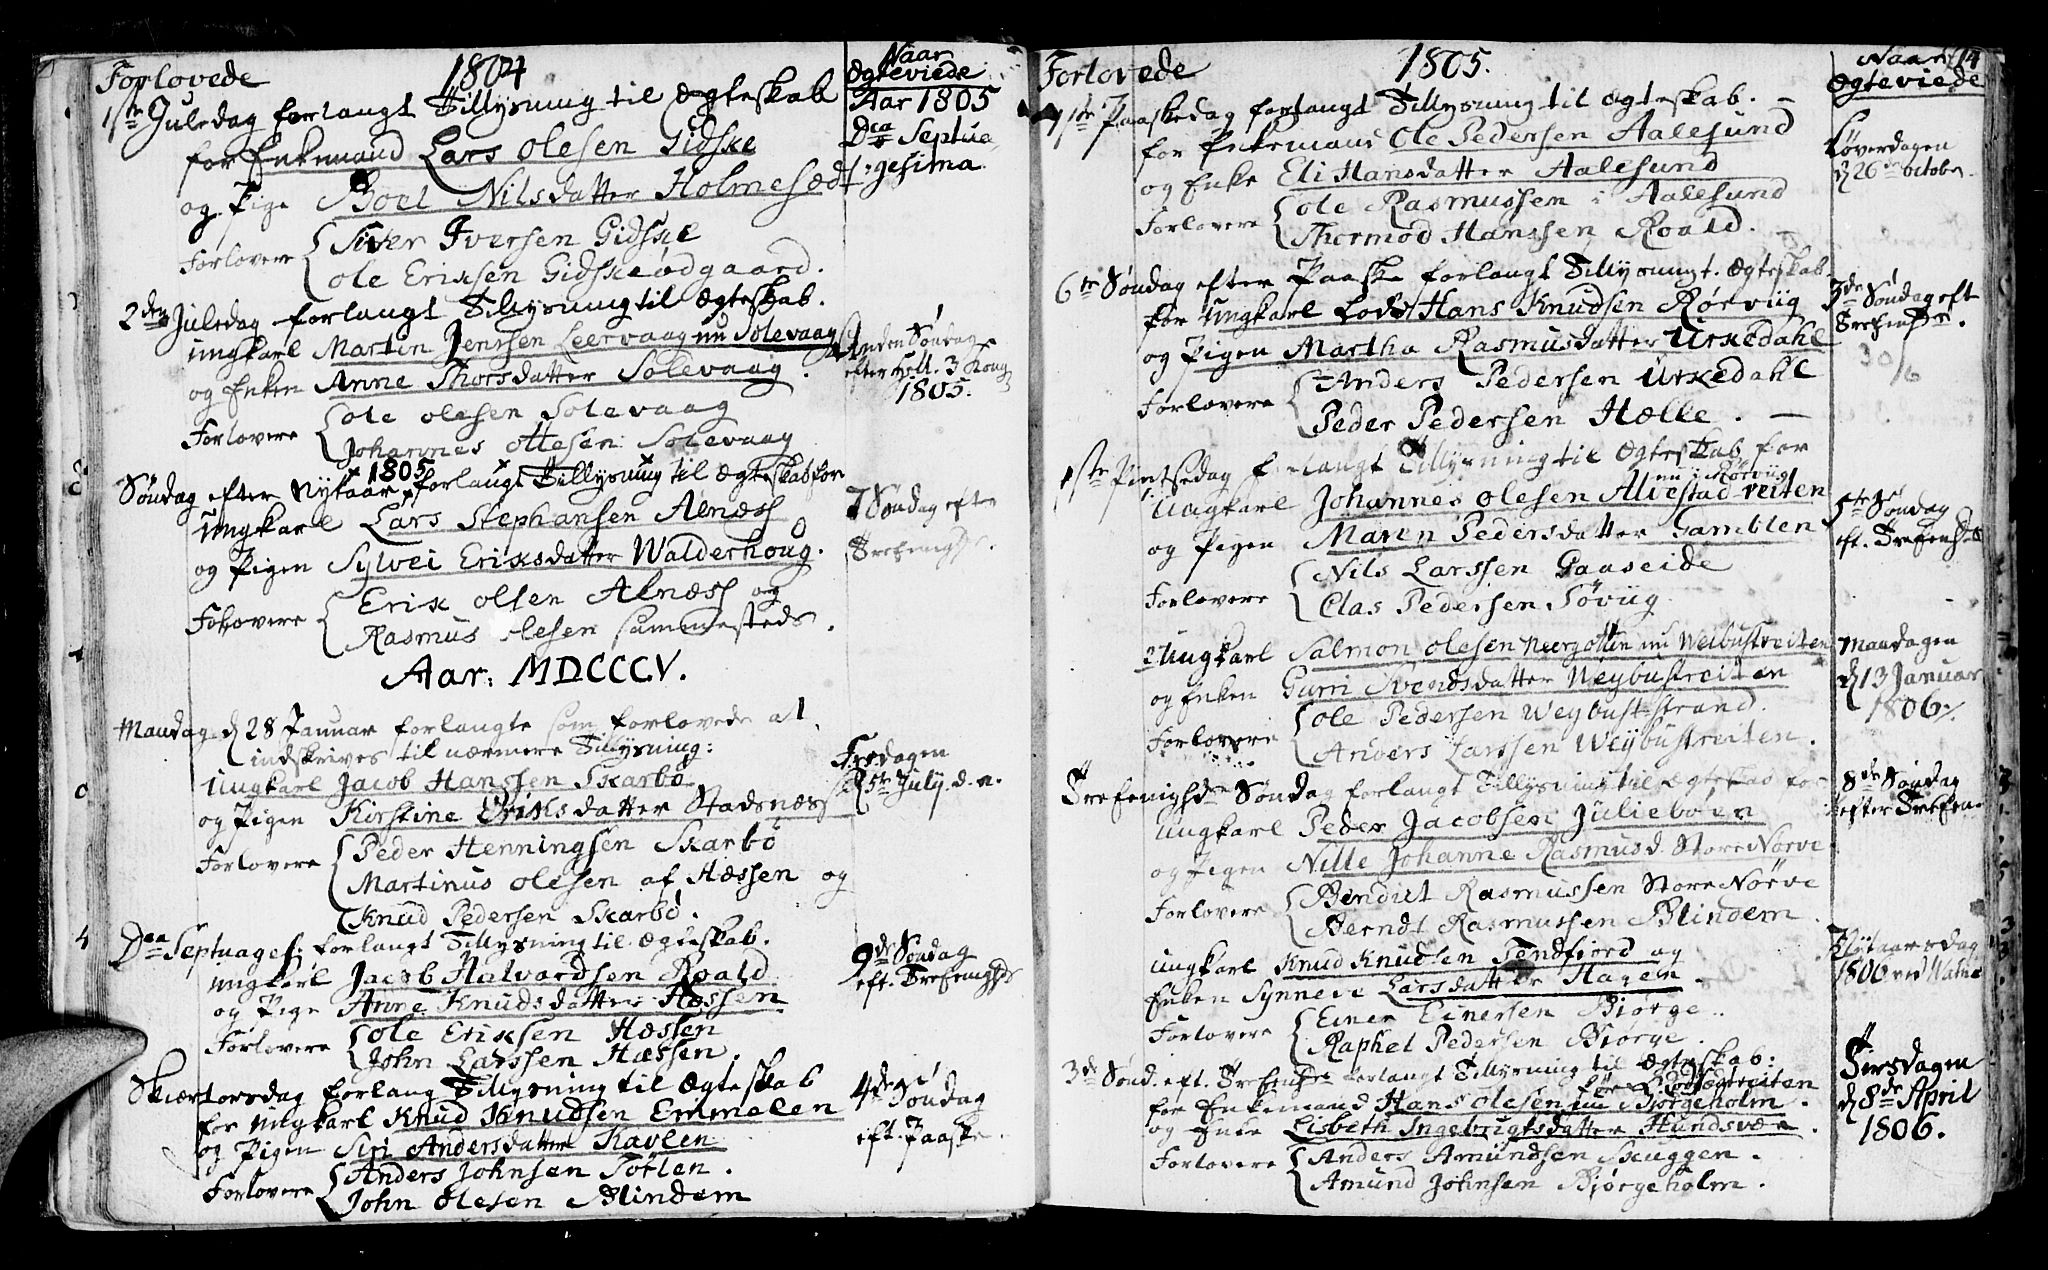 Forlovede 1804 Naar Ægteviede
1ste Juledag forlangt Tillysning til Ægteskab Aar 1805
for Enkemand Lars Olesen Gidske Dca Septua-
og Pige Boel Nilsdatter Holmesæd gesima
Forlovere Siver Iversen Gidske
Ole Eriksen Gidskeødgaard.
2den Juledag forlangt Tillysning til Ægteskab.
ungkarl Martin Jenssen Leervaag nu Solevaag Anden Søndag
og Enken Anne Thorsdatter Solevaag. efter Hell. 3 Kong
1805.
Forlovere Ole Olesen Solevaag
Johannes Ottesen Solevaag
1805
Søndag efter Nytaar forlangt Tillysning til Ægteskab for
ungkarl Lars Stephansen Alnæss 7 Søndag efter
og Pigen Sylvei Eriksdatter Walderhoug. Trefenighs.
Forlovere Erik Olsen Alnæss og
Rasmus Olesen sammesteds.
Aar: MDCCCV.
Mandag d 28 Januar forlangte som forlovede at
indskrives til nærmere Tillysning:
ungkarl Jacob Hanssen Skarbø Fredagen
og Pigen Kirstine Eriksdatter Stadsnæss d 5te July d. a.
Forlovere Peder Henningsen Skarbø
Martinus Olesen af Hæssen og
Knud Pedersen Skarbø.
Dca Septuages: forlangt Tillysning til Ægteskab.
ungkarl Jacob Halvardsen Roald 9de Søndag
og Pige Anne Knudsdatter Hæssen eft. Trefenighd
Forlovere Ole Eriksen Hæssen
John Larssen Hæssen.
Skiærtorsdag forlang Tillysning til Ægteskab
for ungkarl Knud Knudsen Emmelen 4de Søndag
og Pigen Siri Andersdatter Kavlen eft. Paaske.
Forlovere Anders Johnsen Tørlen.
John Olesen Blindem
Forlovede 1805. Naar 14
Ægteviede
1ste Paaskedag forlangt Tillysning til Ægteskab.
for Enkemand Ole Pedersen Aalesund Løverdagen
og Enke Eli Hansdatter Aalesund d 26de October.
Forlovere Ole Rasmussen i Aalesund
Thormod Hanssen Roald.
6te Søndag efter Paaske forlangt Tillysning t. Ægteskab.
for ungkarl Hans Knudsen Rørviig 3de Søndag eft
og Pigen Martha Rasmusdatter Urkedahl Trefenghr.
30/6
Forlovere Anders Pedersen Urkedahl
Peder Pedersen Hælle.
1ste Pintsedag forlangt Tillysning til Ægteskab for
nu i Rørviig
Ungkarl Johannes Olesen Alvestadreiten 5te Søndag
og Pigen Maren Pedersdatter Gamblen eft. Trefengh
Forlovere Nils Larssen Gaaseide
Clas Pedersen Søviig
2 Ungkarl Salmon Olesen nu Weibustreiten Mandagen
og Enken Gurri Svendsdatter Weybustreiten d 13 Januar
1806.
Forlovere Ole Pedersen Weybust-strand.
Anders Larssen Weybustreiten.
Trefenighds Søndag forlangt Tillysning til Ægteskab for 8de Søndag
ungkarl Peder Jacobsen Julieboen efter Trefen
og Pigen Nille Johanne Rasmusd. Store Nørve
Forlovere Bendict Rasmussen Store Nørve
Berndt Rasmussen Blindem.
ungkarl Knud Knudsen Tendfiord og Nytaarsdag
Enken Synneve Larsdatter Hagen. 1806 ved Watne
Forlovere Einer Einersen Biørge.
Raphel Pedersen Biørge.
3de Sønd. eft. Trefenghr forlangt Tillysning til Ægteskab:
for Enkemand Hans Olesen nu Biørgeholm. Tirsdagen
og Enke Lisbeth Ingebrigtsdatter Hundsvær. d 8de April
1806.
Forlovere Anders Amundsen Skuggen.
Amund Johnsen Biørgeholm.